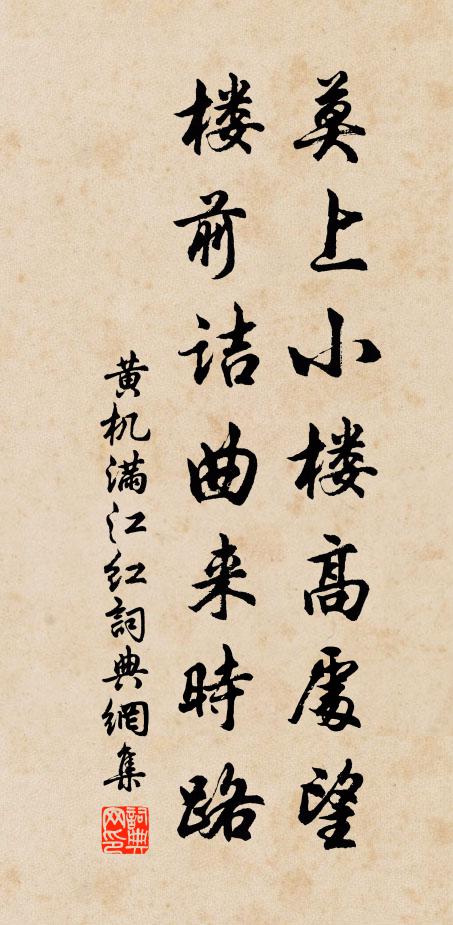 莫上小楼高處望
楼前诘曲来時路
黄机满江红詞典網集
詞典
网印